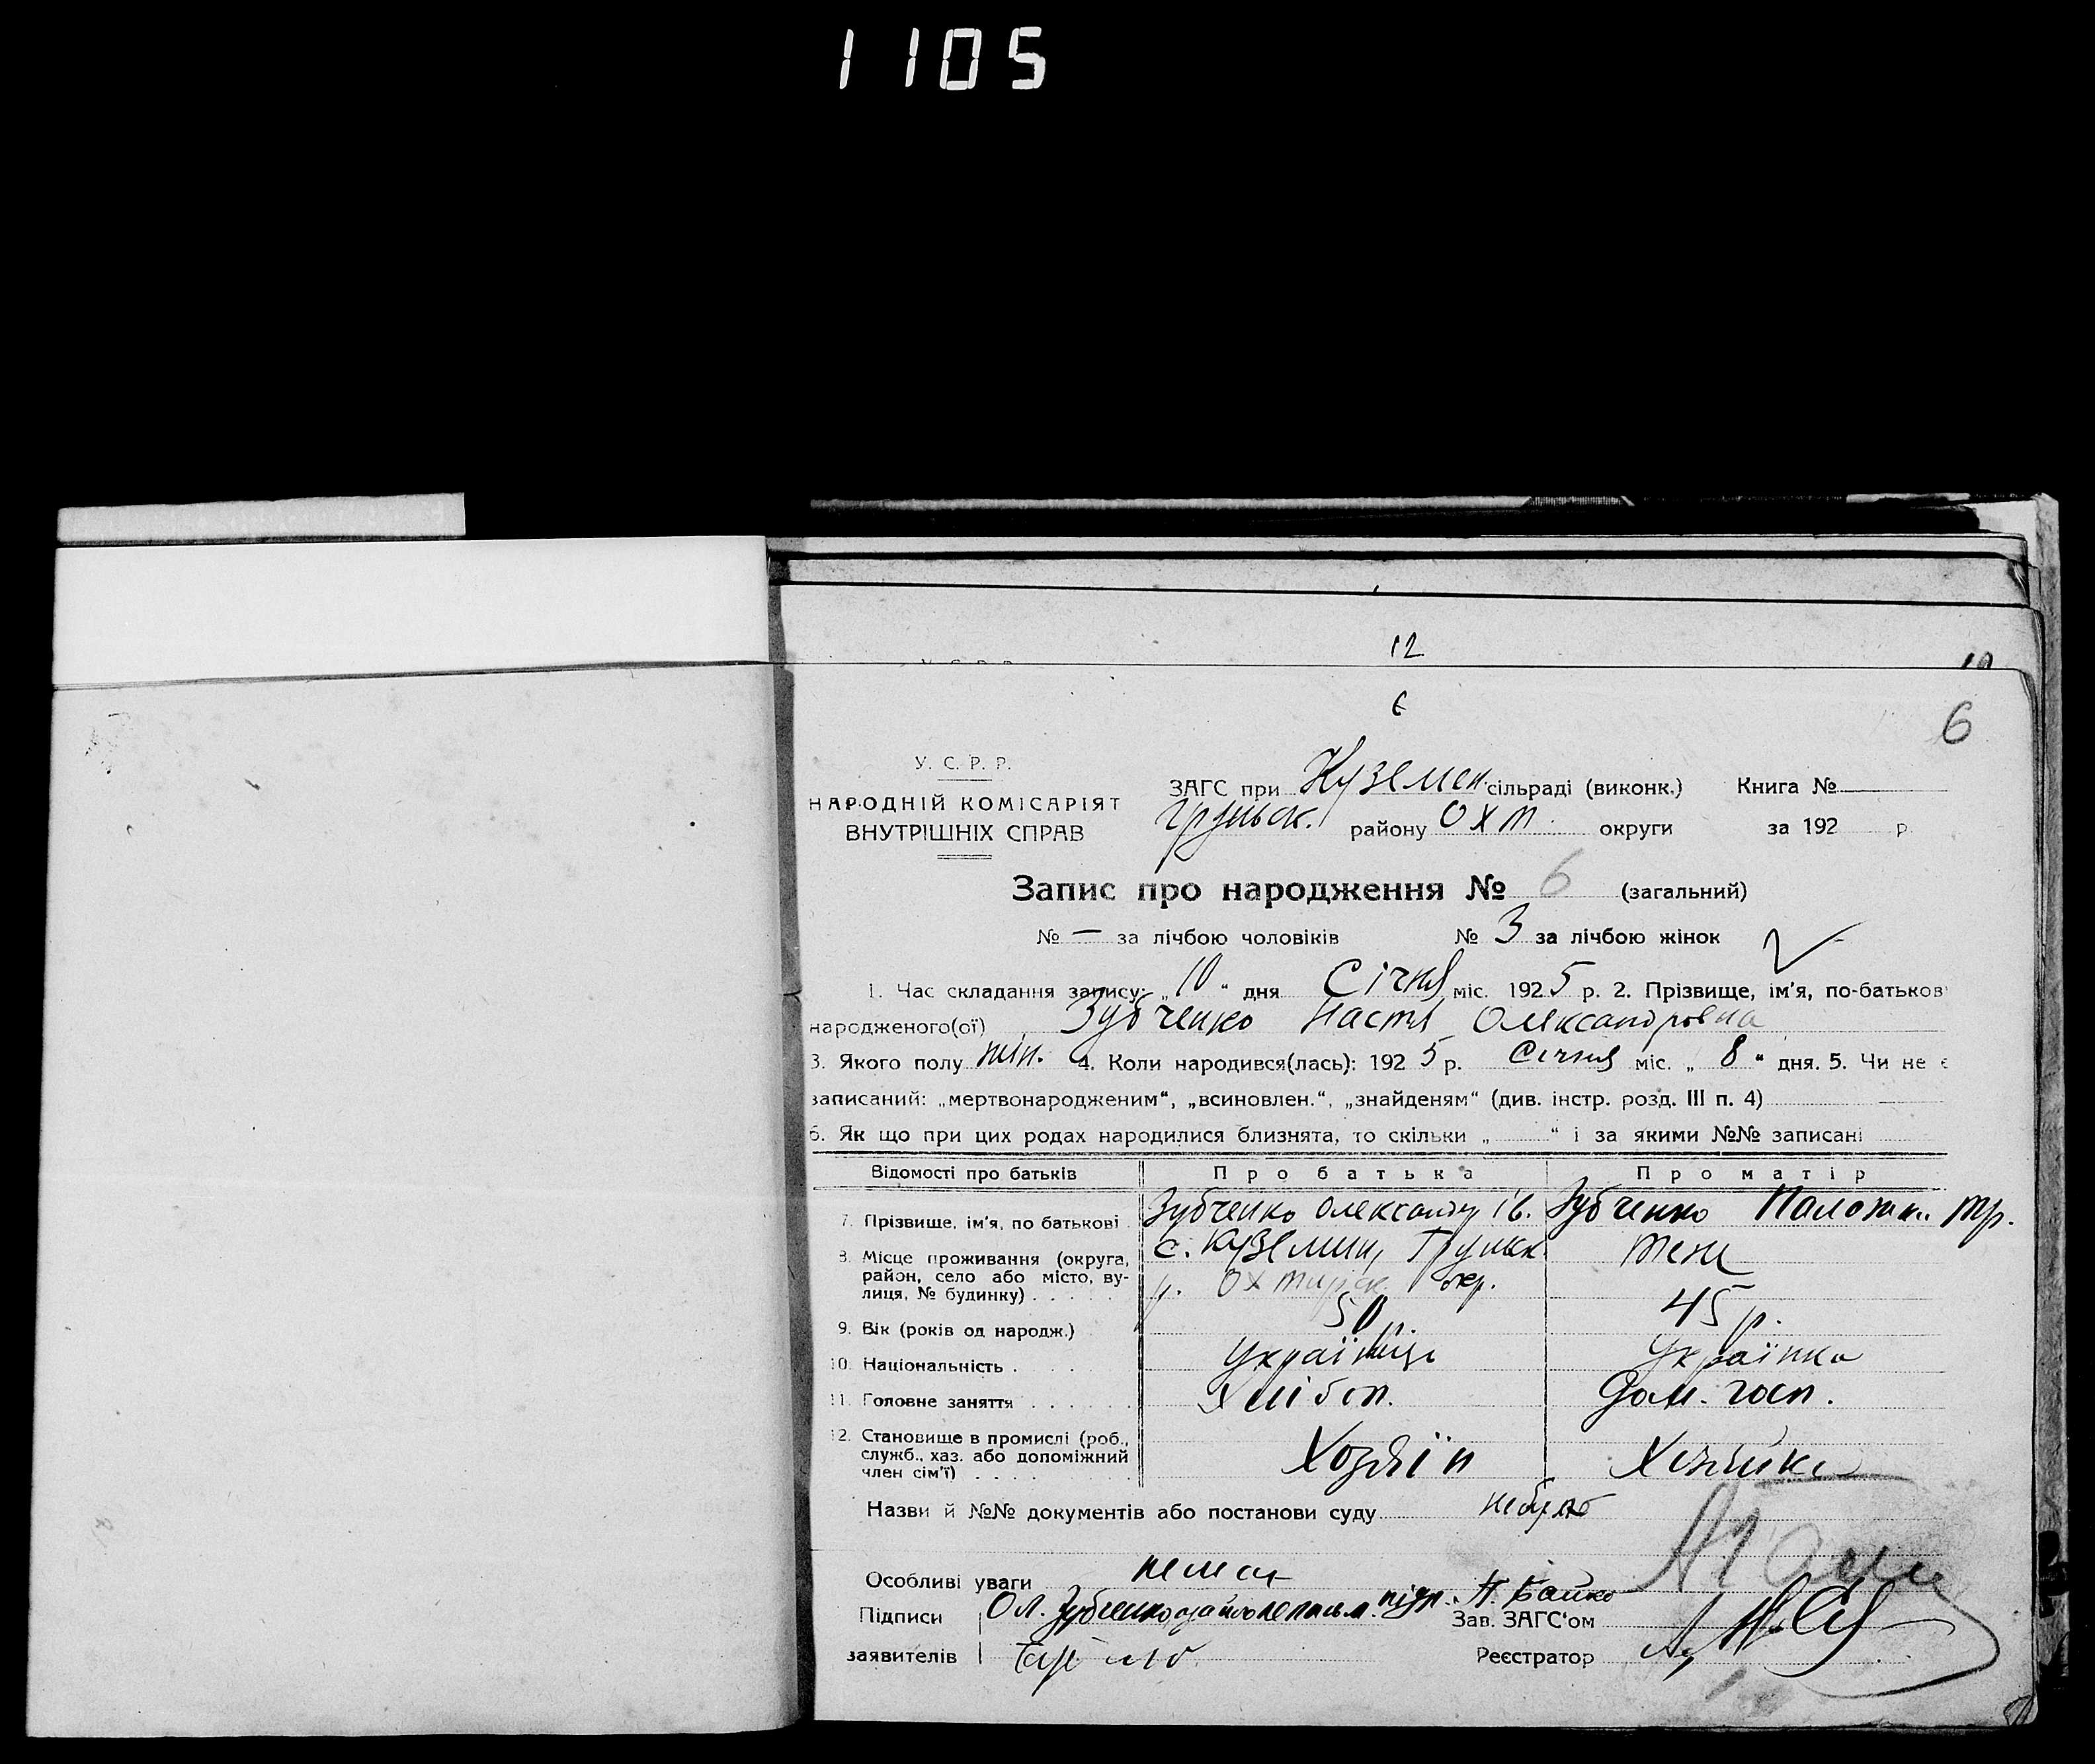 1105
12
6
6
У. С. Р. Р.
НАРОДНІЙ КОМІСАРІЯТ
ВНУТРІШНІХ СПРАВ
ЗАГС при Куземен. сільраді (виконк.) Книга №
Груньск. району Охт. округи за 192 р
Запис про народження № 6 (загальний)
№ — за лічбою чоловіків № 3 за лічбою жінок
1. Час складання запису: „10" дня Січня міс. 1925 р. 2. Прізвище, ім'я, по-батьков
народженого(ої) Зубченко Настя Олександровна
3. Якого полу жін. 4. Коли народився(лась): 1925 р. Січня міс. „8" дня. 5. Чи не є
записаний: „мертвонародженим", „всиновлен.", „знайденям" (див. інстр. розд. III п. 4)
6. Як що при цих родах народилися близнята, то скільки „ " і за якими №№ записані
Відомості про батьків Про батька Про матір
7. Прізвище, ім'я, по батькові Зубченко Олександр Ів. Зубченко Палажк. Тр.
8. Місце проживання (округа, район, село або місто, вулиця, № будинку) с. Куземин, Груньск. р. Охтирск. окр.
9. Вік (років од народж.) 50 р. 45 р.
10. Національність Українці Українка
11. Головне заняття Хлібоп. Дом. госп.
12. Становище в промислі (роб., служб., хаз. або допоміжний член сім'ї) Хозяїн Хозяйка
Назви й №№ документів або постанови суду небуло
Особливі уваги немає
Підписи Ол. Зубченко, а за його непис.м. підп. П. Бойко
заявителів
Зав. ЗАГС'ом
Реєстратор